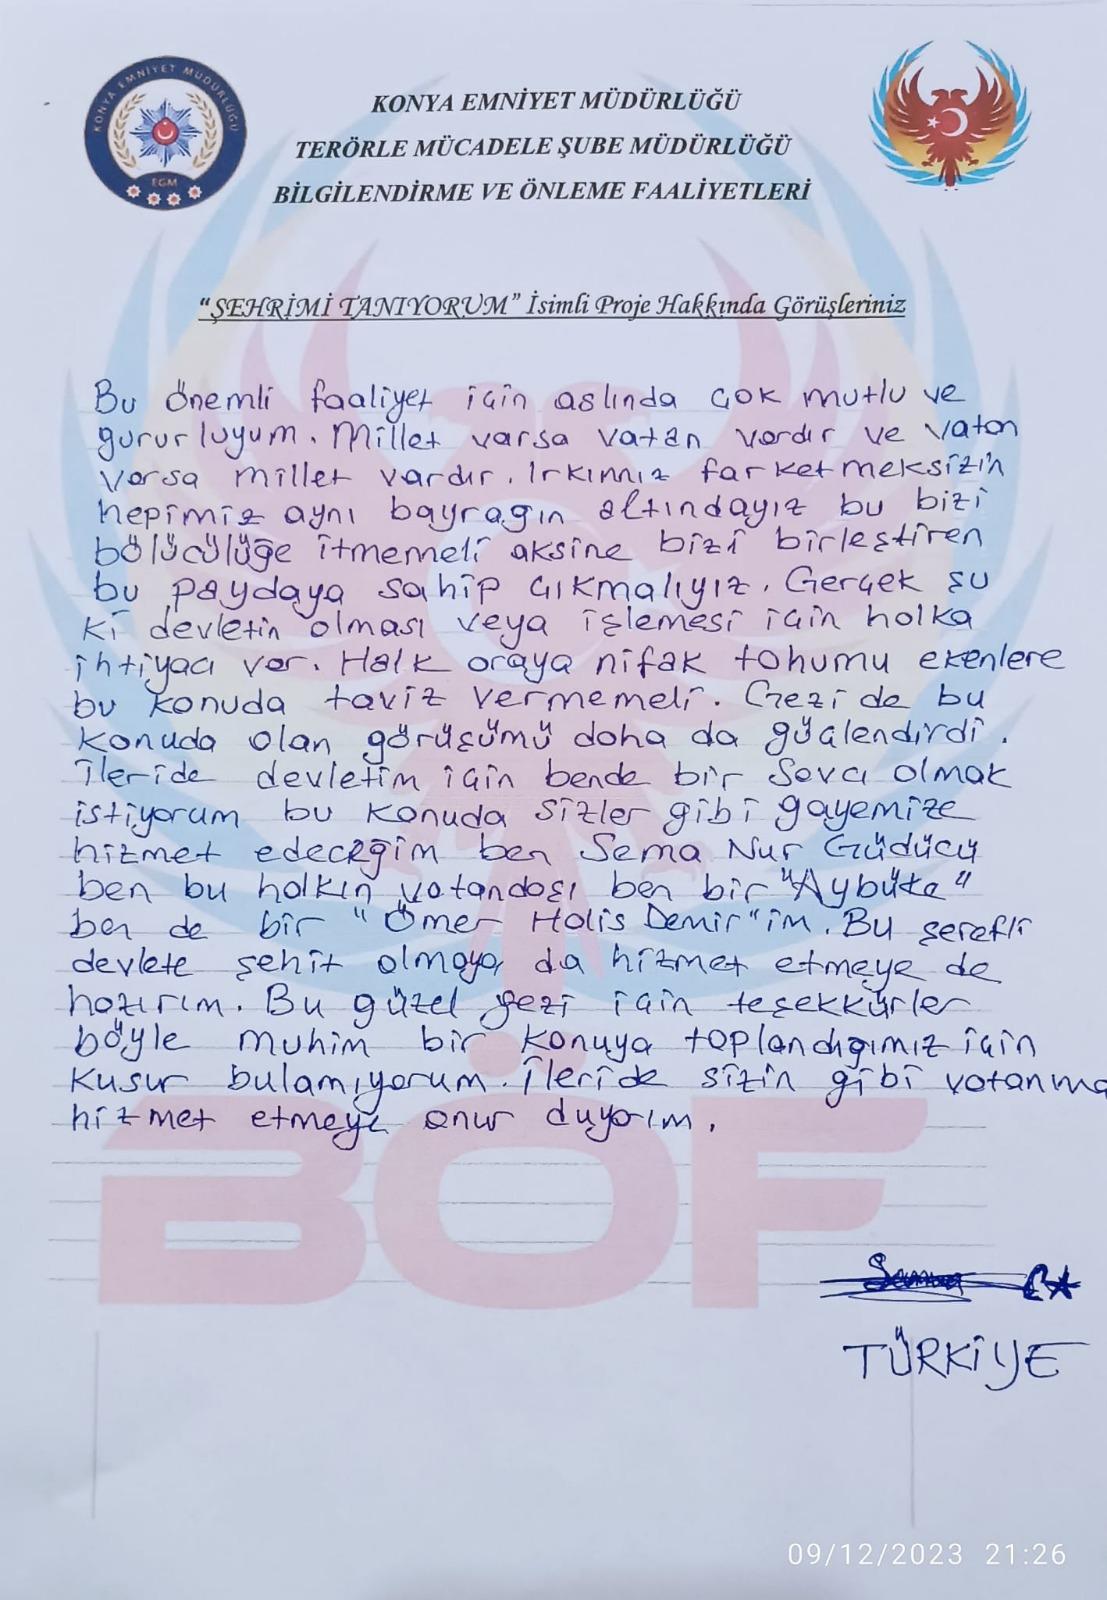 KONYA EMNİYET MÜDÜRLÜĞÜ
EGM
KONYA EMNİYET MÜDÜRLÜĞÜ
TERÖRLE MÜCADELE ŞUBE MÜDÜRLÜĞÜ
BİLGİLENDİRME VE ÖNLEME FAALİYETLERİ
"ŞEHRİMİ TANIYORUM" İsimli Proje Hakkında Görüşleriniz
Bu önemli faaliyet için aslında çok mutlu ve
gururluyum. Millet varsa vatan vardır ve vatan
varsa millet vardır. Irkımız farketmeksizin
hepimiz aynı bayrağın altındayız bu bizi
bölücülüğe itmemeli aksine bizi birleştiren
bu paydaya sahip çıkmalıyız. Gerçek şu
ki devletin olması veya işlemesi için halka
ihtiyacı var. Halk oraya nifak tohumu ekenlere
bu konuda taviz vermemeli. Gezi de bu
konuda olan görüşümü daha da güçlendirdi.
İleride devletim için bende bir Savcı olmak
istiyorum bu konuda sizler gibi gayemize
hizmet edeceğim ben Sema Nur Güdücü
ben bu halkın vatandaşı ben bir "Aybüke"
ben de bir "Ömer Halis Demir"im. Bu şerefli
devlete şehit olmaya da hizmet etmeye de
hazırım. Bu güzel gezi için teşekkürler
böyle muhim bir konuya toplandığımız için
kusur bulamıyorum. İleride sizin gibi vatanıma
hizmet etmeye onur duyorım.
BÖF
TÜRKİYE
09/12/2023 21:26